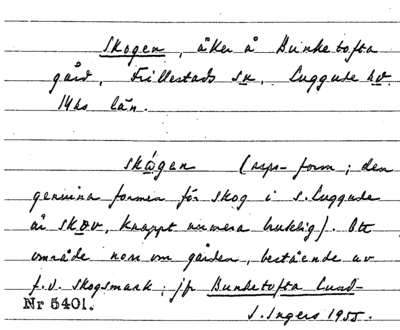 Skogen, åker å Bunketofta
gård, Frillestads sn, Luggude hd.
Mhs län.
skógan (rsps-form; den
genuina formen för skog i s. Luggude
är skov, knappt numera bruklig). Ett
område norr om gården, bestående av
f.d. skogsmark; jfr Bunketofta Lund-
Nr 5401.
I. Ingers 1955.